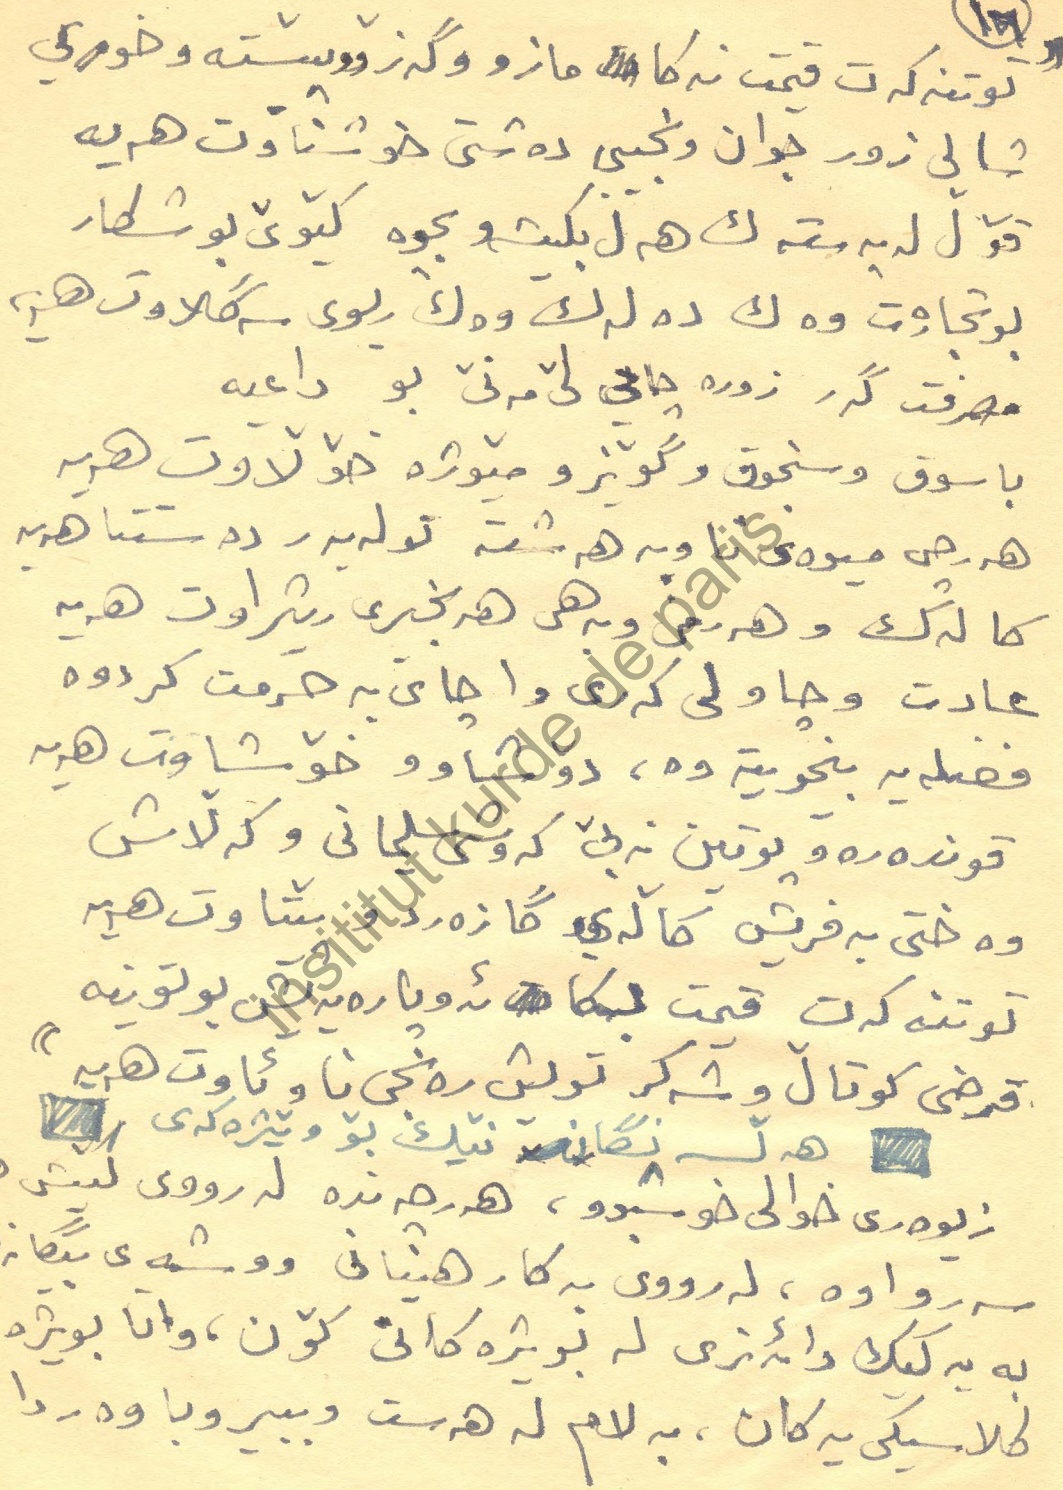 ١٦
« توتنەکەت قیمت نەکا مازو وگەزۆو پیشتە و خوری
شالی زور جوان ونجیبی دەشتی خوشناوت هەیە
قۆل لە پەستەك هەل بکیشو بچوە کیۆی بو شکار
بو تجارەت وەك دەلەك وەك ریوی سەگلاوت هەیە
مصرفت گەر زورە چایی لی مەنێ بو داعیە
باسوق وسنجوق وگوێز و میوژە خۆلاوت هەیە
هەرچی میوەی ناو بەهەشتە تولەبەر دەستتا هەیە
کالەك و هەرمی وبەهی هەنجیری ریژاوت هەیە
عادت وچاو لی کەری وا چای بە حرمت کردوە
فضلە بە بیخویتەوە، دوشاو و خۆشاوت هەیە
قوندەرە و پوتین نەبێ کەوشی سلیمانی وکەلاش
وەختی بەفریش کالەی گازەرد و پیتاوت هەیە
توتنەکەت قیمت بکا ئەو پارەیەیش بو توینیە
قرضی کوتال وشەکر تولیش رەنجی ناو ئاوت هەیە »
هەلسەنگاندنێك بۆ ویژەکەی
زیوەری خوالی خوشبوو، هەرچەندە لە رووی کیش
سەرواوە، لە رووی بەکار هینانی ووشەی بیگانە
بە یەکیك دائەنری لە بویژە کانی کۆن، واتا بویژە
کلاسیکی یەکان، بەلام لە هەست وبیر وباوەردا
Insititut kurde de paris